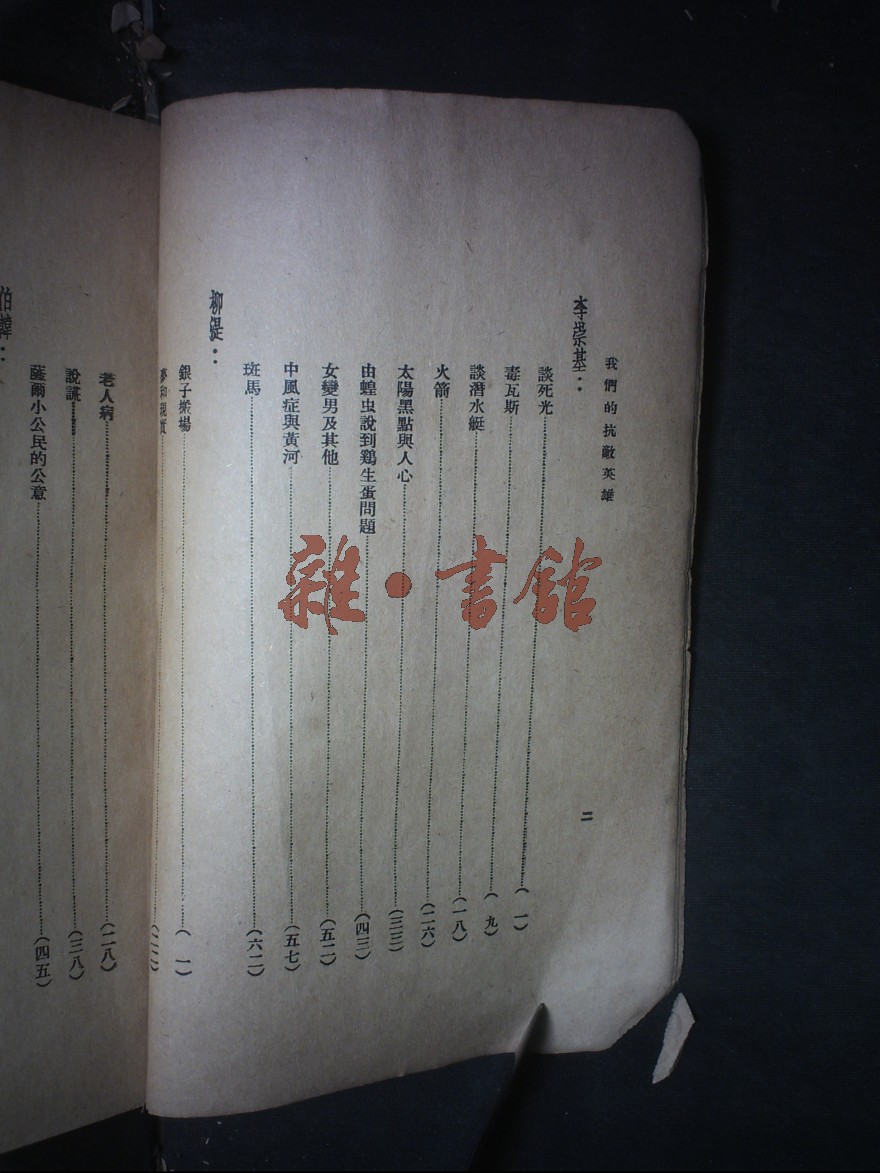 我們的抗敵英雄
二
李崇基：
談死光（一）
毒瓦斯（九）
談潛水艇（一八）
火箭（二六）
太陽黑點與人心（三三）
由蝗虫說到鷄生蛋問題（四三）
女變男及其他（五二）
中風症與黃河（五七）
斑馬（六二）
柳湜：
銀子搬場（一）
夢和現實
老人病（二八）
說謊（三八）
薩爾小公民的公意（四五）
伯韓：
雜·書館